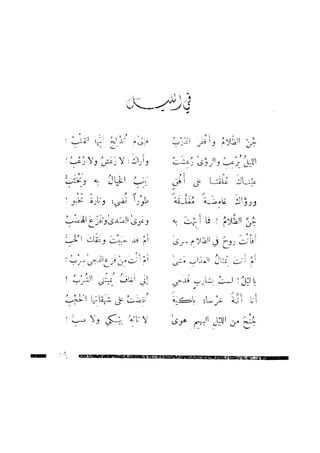 في الليل
جُنَّ الظلامُ وأقفر الدربُ وإلامَ تُدلجُ أيها القلبُ !
الليلُ يُرعبُ والرؤى رُعِشت وأراك : لا رعشٌ ولا رُعبُ !
عيناك علقتا على أفقٍ يثبُ الخيالُ به
ورؤاك غامضةٌ مغلقةٌ طوراً تضيءُ وتارةً تخبو !
جُنَّ الظلامُ ! فما أبهتَ به وعوى الصدى وتفزع الهضبُ
أفأنت روحٌ في الظلام سرى أم قد وعقك الحبُ
أم أنت تمثالُ العذاب مشى أم أنت من فزع الدجى سربُ !
يا ليلُ ! لستُ بشاربٍ قدحي إني أخافُ يُميتني الشربُ !
أنا أنّةٌ خرساءُ باكيةٌ على شهقاتها الحجبُ
جُنحٌ من الليل البهيم هوى لا يبكي ولا صبُ !
١٦